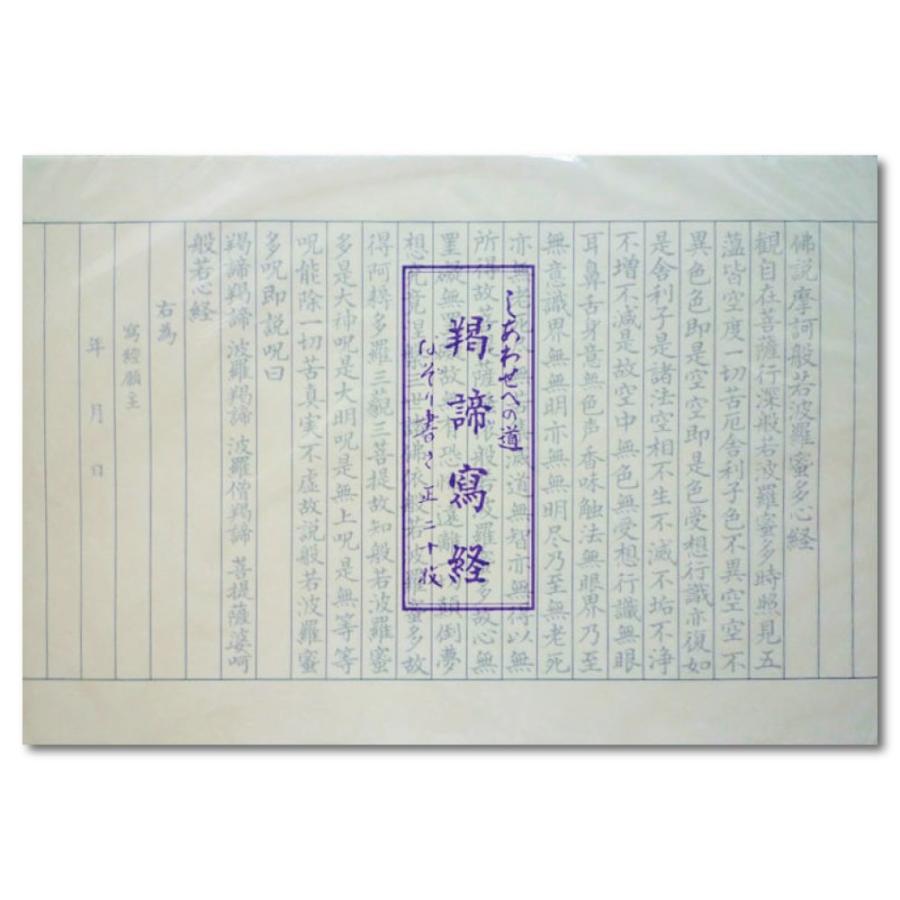 佛説摩訶般若波羅蜜多心経
観自在菩薩行深般若波羅蜜多時照見五
薀皆空度一切苦厄舎利子色不異空空不
異色色即是空空即是色受想行識亦復如
是舎利子是諸法空相不生不滅不垢不浄
不増不減是故空中無色無受想行識無眼
耳鼻舌身意無色声香味触法無眼界乃至
無意識界無無明亦無無明尽乃至無老死
亦無老 滅道無智亦無得以無
所得故 薩 依般若波羅蜜多故心無
罣礙無罣 故 有恐怖遠離 顛倒夢
想究竟涅槃三世諸佛依般若波羅蜜多故
得阿耨多羅三藐三菩提故知般若波羅蜜
多是大神呪是大明呪是無上呪是無等等
呪能除一切苦真実不虚故説般若波羅蜜
多呪即説呪曰
羯諦羯諦 波羅羯諦 波羅僧羯諦 菩提薩婆呵
般若心経
右為
寫經願主
年 月 日
しあわせへの道
羯諦寫経
なぞり書き 正二十枚